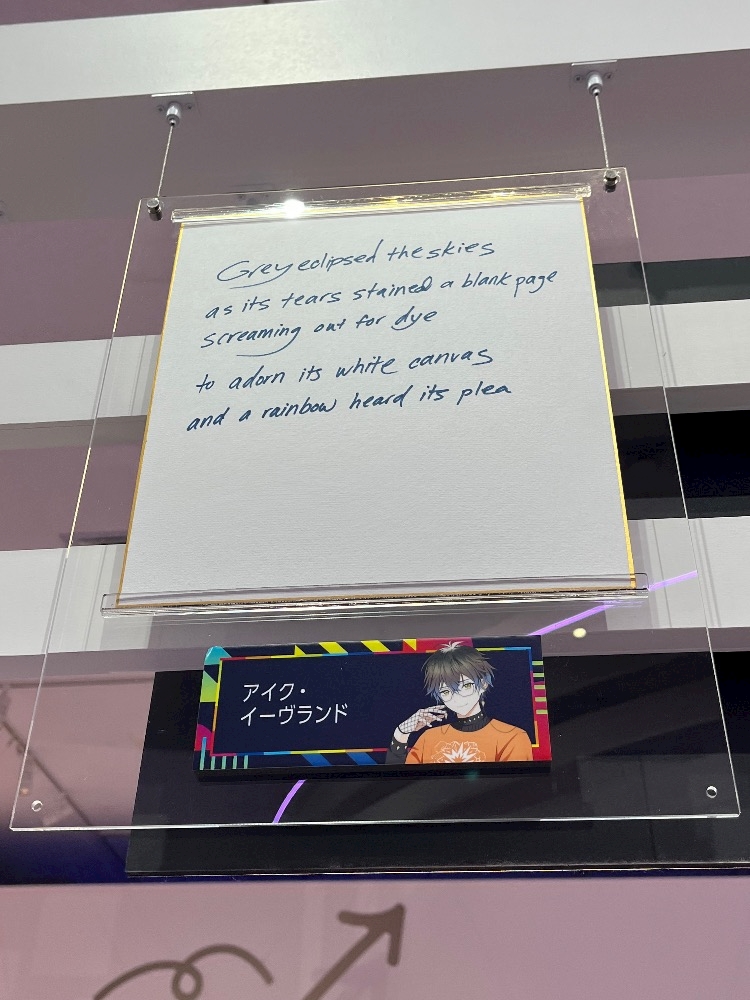 Grey eclipsed the skies
as its tears stained a blank page
screaming out for dye
to adorn its white canvas
and a rainbow heard its plea
アイク・
イーヴランド